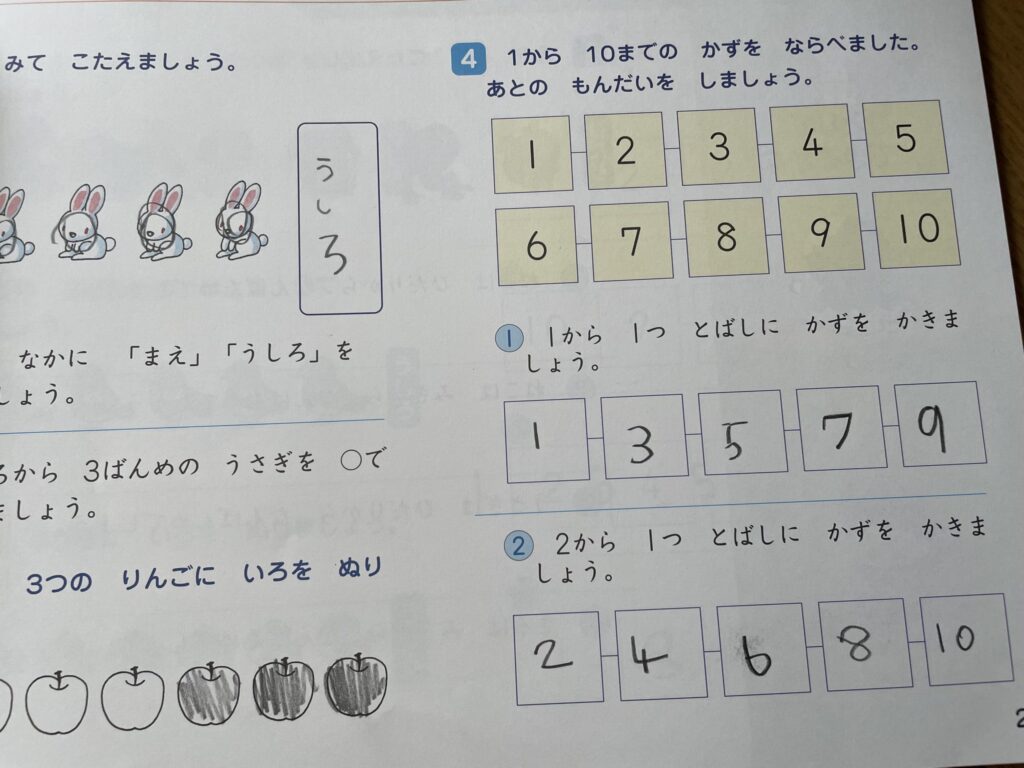 みて こたえましょう。
うしろ
なかに 「まえ」「うしろ」を
しょう。
ろから 3ばんめの うさぎを ○で
ましょう。
3つの りんごに いろを ぬり
4 1から 10までの かずを ならべました。
あとの もんだいを しましょう。
1 2 3 4 5
6 7 8 9 10
1 1から 1つ とばしに かずを かきま
しょう。
1 3 5 7 9
2 2から 1つ とばしに かずを かきま
しょう。
2 4 6 8 10
2